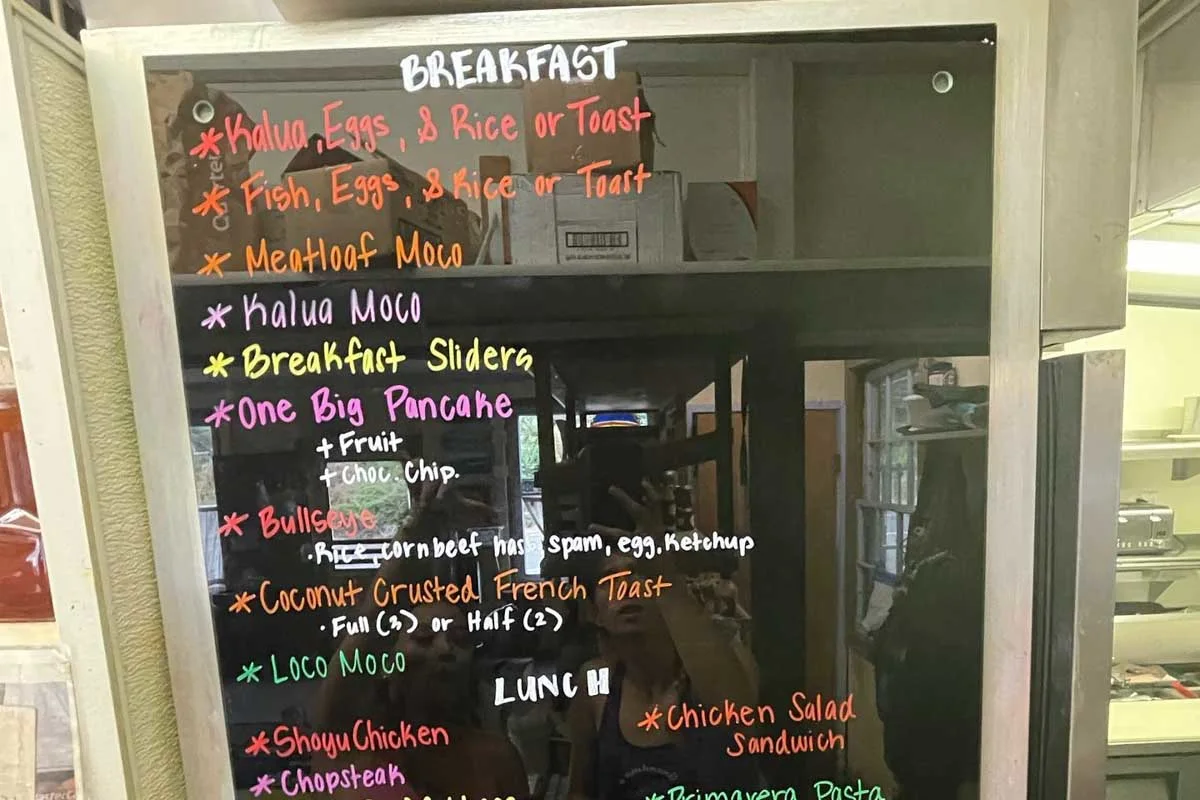 BREAKFAST
*Kalua, Eggs, & Rice or Toast
* Fish, Eggs, & Rice or Toast
* Meatloaf Moco
* Kalua Moco
* Breakfast Sliders
*One Big Pancake
+ Fruit
+ Choc. Chip.
* Bullseye
• Rice, cornbeef hash, spam, egg, ketchup
* Coconut Crusted French Toast
• Full (3) or Half (2)
* Loco Moco
LUNCH
*Shoyu Chicken
*Chopsteak
*Chicken Salad
Sandwich
*Primavera Pasta